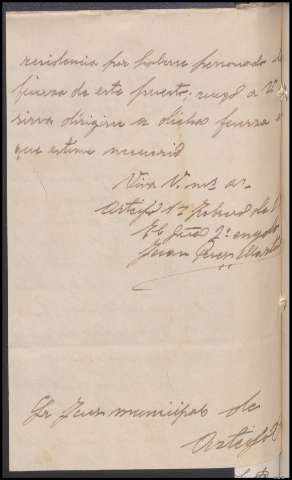 residencia por haberse personado
fuerza de este puesto; ruego a V
sirva dirigirse a dicha fuerza
que estime necesario
Viva V. m.s a.s
Arteijo 1º Febrero de
El Gua 2º
Juan Perez
Sr Juez municipal de
Arteijo